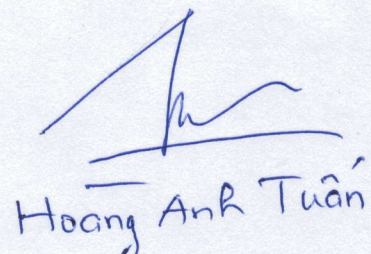 Hoàng Anh Tuấn